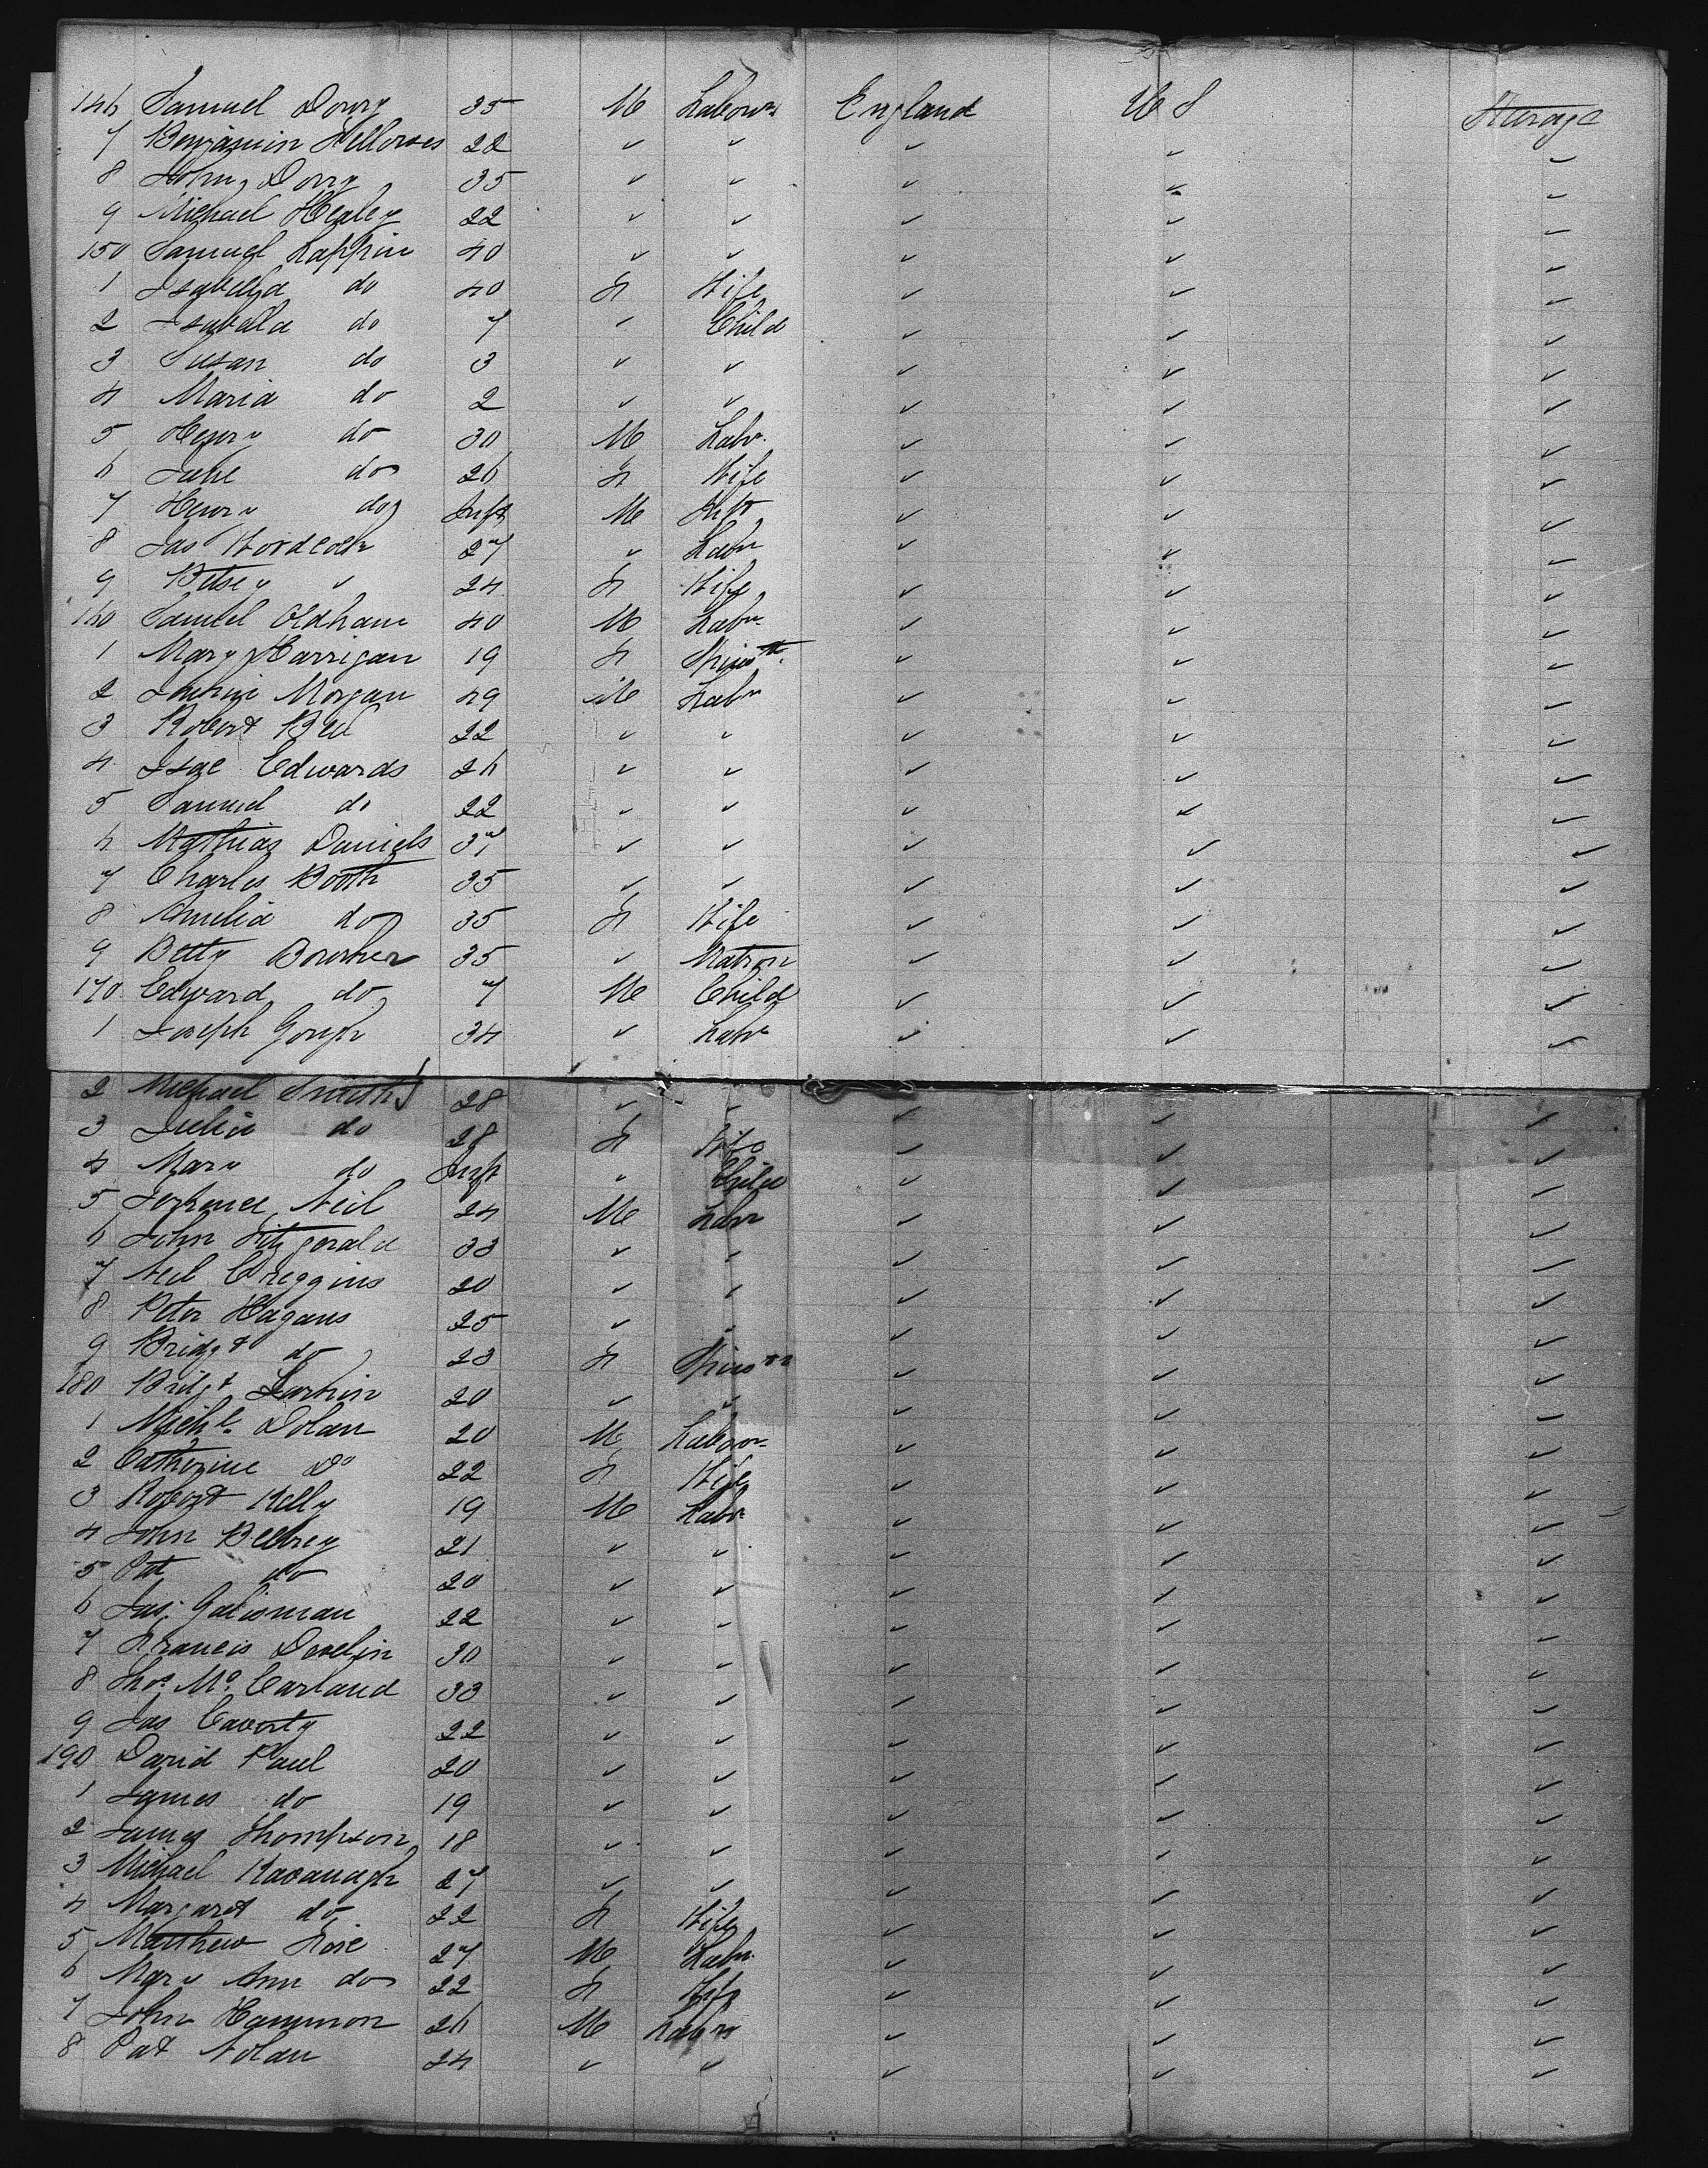 146 Samuel Dorry 35 M Labour England U S Steerage
7 Benjamin 22 " " " " "
8 John Dorry 35 " " " " "
9 Michael Healey 22 " " " " "
150 Samuel Lappin 40 " " " " "
1 Isabella do 40 F Wife " " "
2 Isabella do 7 " Child " " "
3 Susan do 3 " " " " "
4 Maria do 2 " " " " "
5 Henry do 30 M Labr " " "
6 Jane do 26 F Wife " " "
7 Henry do Inft M Inft " " "
8 Jas 27 " Labr " " "
9 Betsey " 24 F Wife " " "
160 Samuel Oldham 40 M Labr " " "
1 Mary Harrigan 19 F Spinstr " " "
2 Morgan 49 M Labr " " "
3 Robert Bell 22 " " " " "
4 Isac Edwards 26 " " " " "
5 Samuel do 22 " " " " "
6 Mathias Daniels 37 " " " " "
7 Charles Booth 35 " " " " "
8 Amelia do 35 F Wife " " "
9 Betty Bowker 35 " Matron " " "
170 Edward do 7 M Child " " "
1 Joseph Gough 34 " Labr " " "
2 Michael Smith 28 " " " " "
3 Julia do 28 F Wife " " "
4 Mary do Inft " Child " " "
5 Neil 24 M Labr " " "
6 John Fitzgerald 33 " " " " "
7 Neil Creggins 20 " " " " "
8 Peter Hagans 25 " " " " "
9 Bridgt do 23 F Spinstr " " "
180 Bridgt Larkin 20 " " " " "
1 Michl. Dolan 20 M Labour " " "
2 Catherine Do 22 F Wife " " "
3 Robert Kelly 19 M Labr " " "
4 John 21 " " " " "
5 Pat do 20 " " " " "
6 Jas. 22 " " " " "
7 Francis Devlin 30 " " " " "
8 Thos. Mc. Carland 33 " " " " "
9 Jas Caverty 22 " " " " "
190 David Paul 20 " " " " "
1 James do 19 " " " " "
2 James Thompson 18 " " " " "
3 Michael Kavanagh 27 " " " " "
4 Margaret do 22 F Wife " " "
5 Matthew 27 M Labr " " "
6 Mary Ann do 22 F Wife " " "
7 John Hammon 26 M Labr " " "
8 Pat Nolan 24 " " " " "